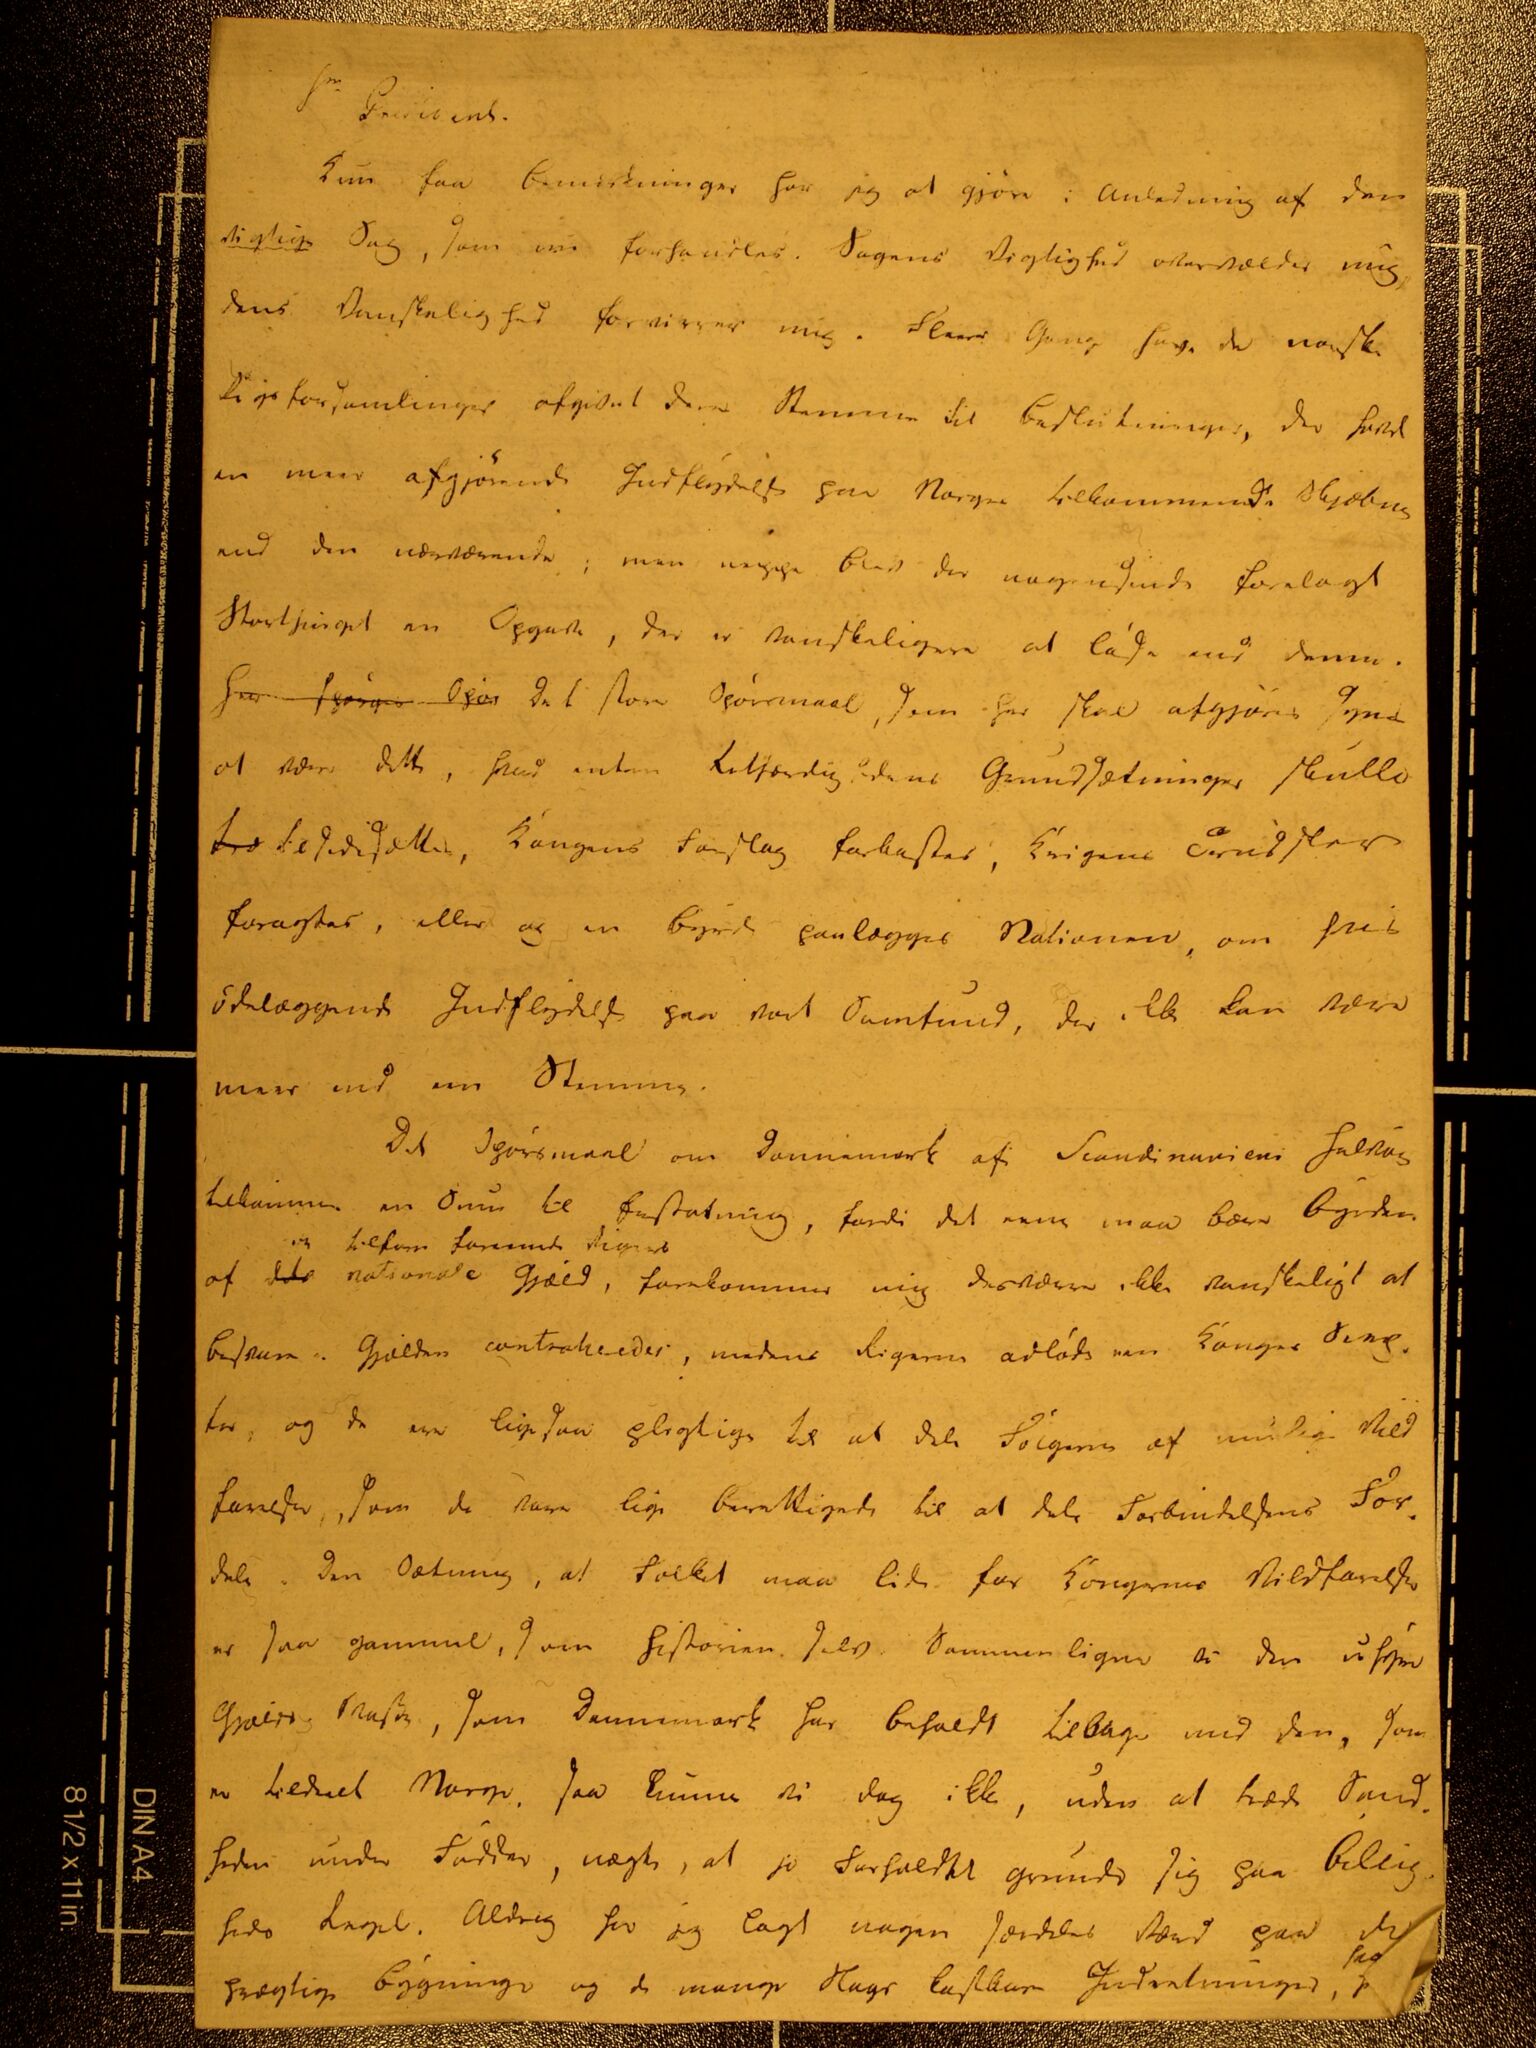 Hr
Præsident.
Kun faa Bemærkninger har jeg at gjöre i Anledning af den
vigtige Sag, som nu forhandles. Sagens Vigtighed overvælder mig,
dens Vanskelighed forvirrer mig. Fleere Gange have de norske
Rigsforsamlinger afgivet deres Stemme til Beslutninger, der havde
en meer afgjörende Indflydelse paa Norges tilkommende Skjæbne
end den nærværende; men neppe blev der nogensinde forelagt
Storthinget en Opgave, der er vanskeligere at löse end denne.
Her spörges Spör Det store Spörsmaal, som her skal afgjöres synes
at være dette, hvad enten Retfærdighedens Grundsætninger skulle
træ tilsidesættes, Kongens Forslag forkastes, Krigens Trudsler
foragtes, eller og en Byrde paalægges Nationen, om hvis
ödelæggende Indflydelse paa vort Samfund, der ikke kan være
meer end een Stemme.
Det Spörsmaal om Dannemark af Scandinaviens Halvöe
tilkommer en Sum til Erstatning, fordi det ene maa bære Byrden
en tilforn forenede Rigers
af dets nationale Gjæld, forekommer mig desværre ikke vanskeligt at
besvare. Gjælden contraheredes, medens Rigerne adlöde een Konges Scep-
ter, og de ere ligesaa pligtige til at dele Fölgerne af mulige Vild
farelser, som de vare lige berettigede til at dele Forbindelsens For-
dele. Den Sætning, at Folket maa lide for Kongernes Vildfarelser
er saa gammel, som Historien selv. Sammenligne vi den uhyre
Gjælds Masse, som Dannemark har beholdt tilbage med den, som
er tildeelt Norge, saa kunne vi dog ikke, uden at træde Sand-
heden under Födder, nægte, at jo Forholdet grunder sig paa Billig-
heds Regel. Aldrig har jeg lagt nogen særdeles Værd paa de
prægtige Bygninger og de mange Slags kostbare Indretninger,